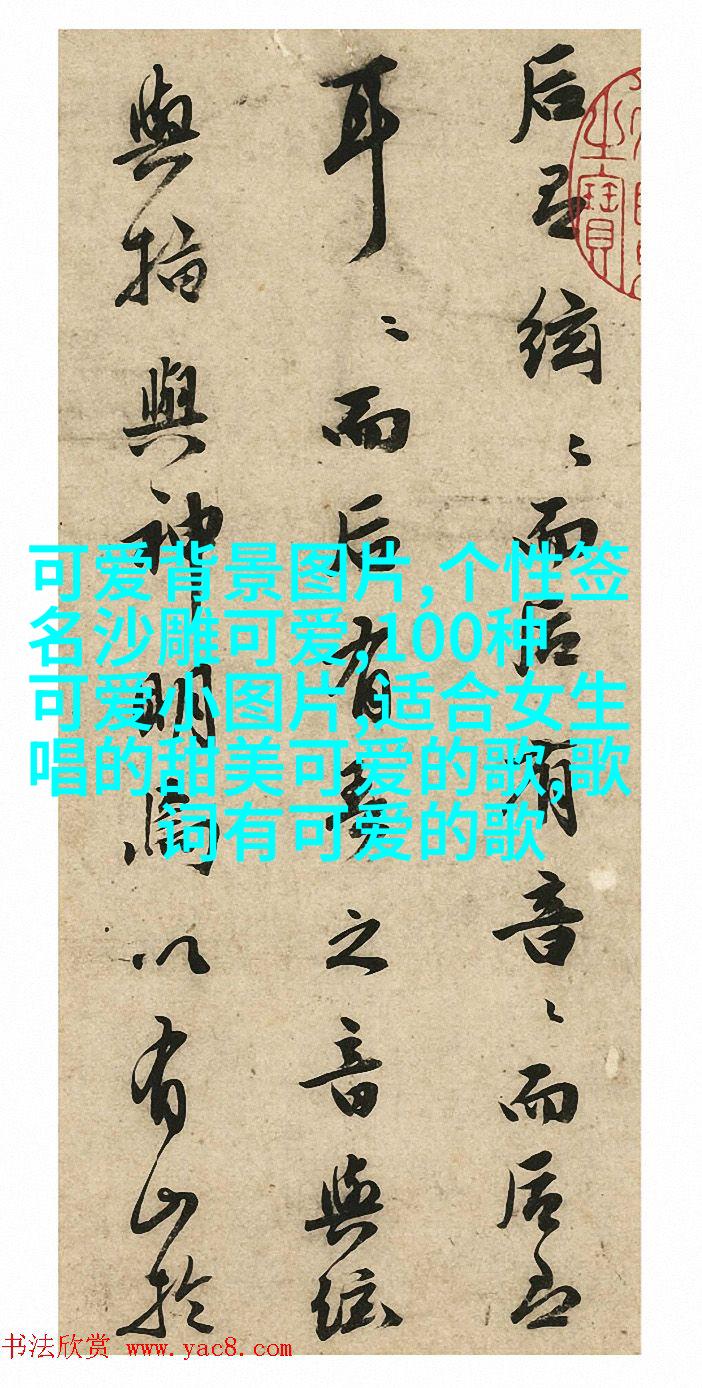 后絃〻而后有音〻而后
耳〻而后有琴之音與絃
與指與神明焉以有山於
之寶
可爱背景图片,个性签
名沙雕可爱,100种
可爱小图片,适合女生
唱的甜美可爱的歌,歌
词有可爱的歌
书法欣赏 www.yac8.com